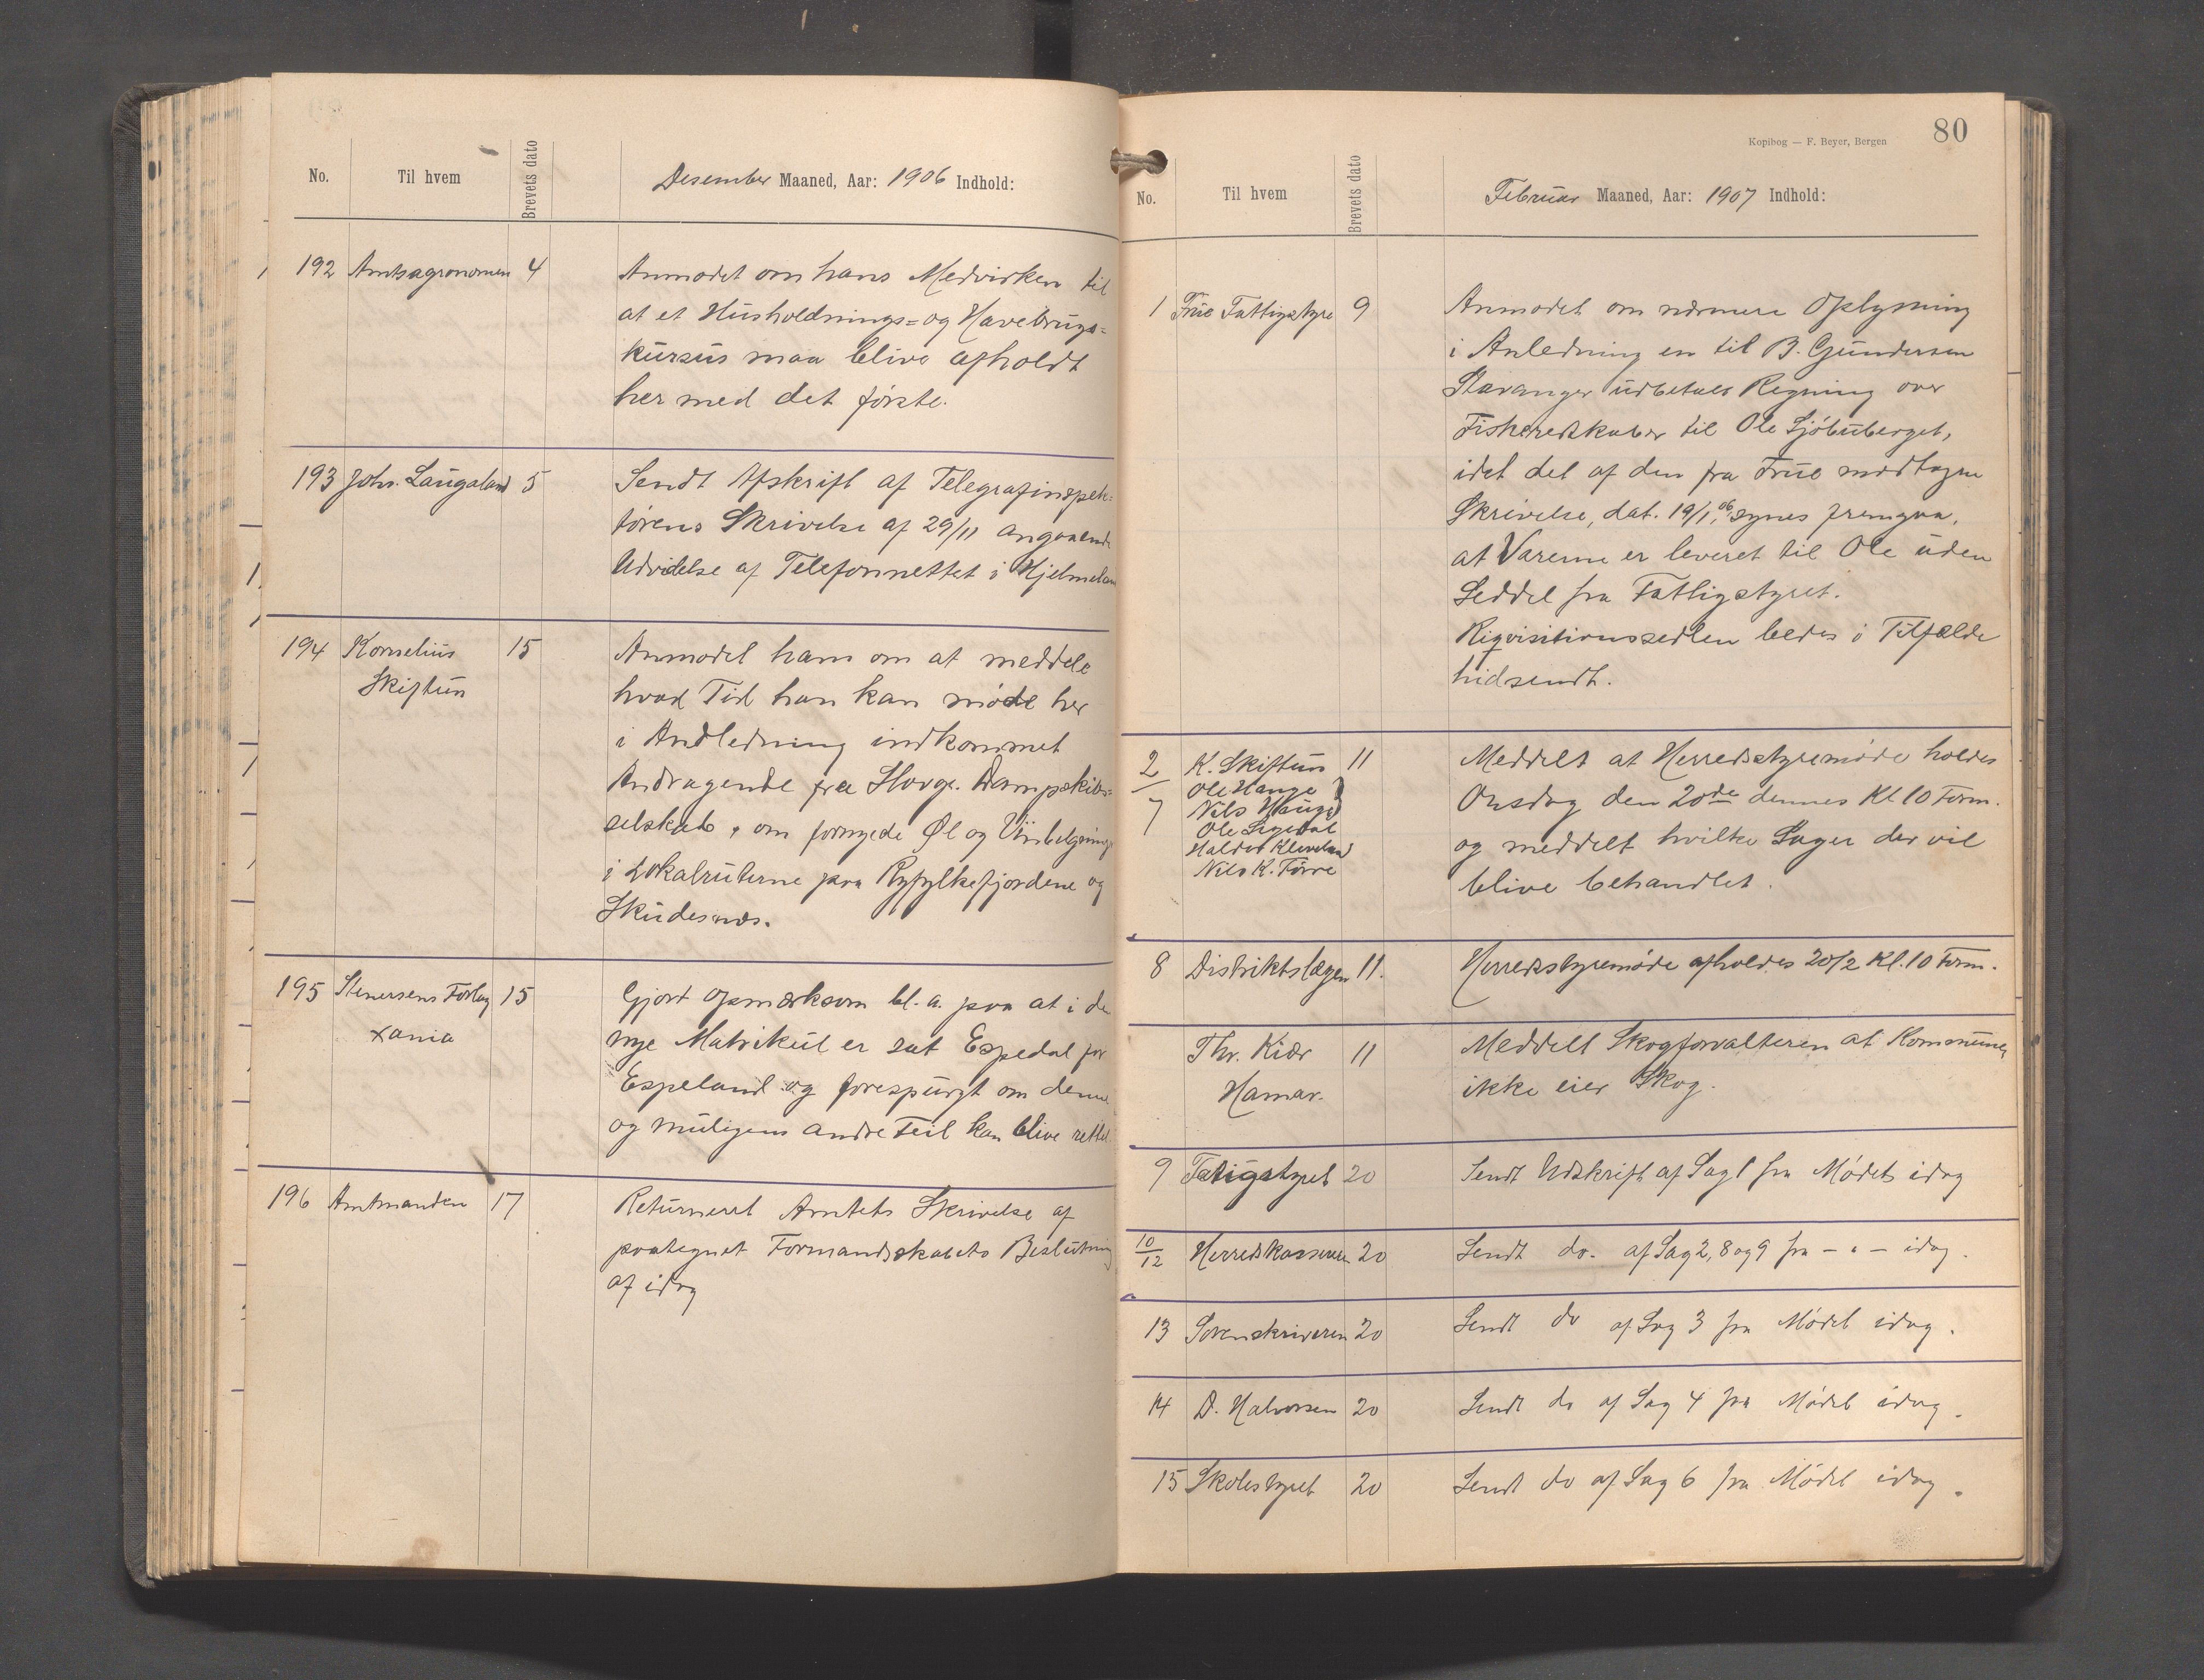 No. Til hvem Brevets dato Desember Maaned, Aar: 1906 Indhold:
192 Amtsagronomen 4 Anmodet om hans Medvirken til
at et Husholdnings= og Havebrugs=
kursus maa blive afholdt
her med det første.
193 Johs. Laugaland 5 Sendt Afskrift af Telegrafinspek=
tørens Skrivelse af 29/11 angaaende
Udvidelse af Telefonnettet i Hjelmeland
194 Kornelius 15 Anmodet ham om at meddele
Skiftun hvad Tid han kan møde her
i Andledning indkommet
Andragende fra Stavgr. Dampskibs=
selskab, om fornyede Øl og Vin
i Lokalruterne paa Ryfylkefjordene og
Skudesnæs.
195 Stenersens Forlag 15 Gjort opmærksom bl. a. paa at i de
Xania nye Matrikul er sat Espedal for
Espeland og forespurgt om denne
og muligens andre Feil kan blive rettet
196 Amtmanden 17 Returneret Amtets Skrivelse af
paategnet Formandskabets Beslutning
af idag
Kopibog — F. Beyer, Bergen 80
No. Til hvem Brevets dato Februar Maaned, Aar: 1907 Indhold:
1 Frue Fattigstyre 9 Anmodet om nærmere Oplysning
i Anledning en til B. Gundersen
Stavanger udbetalt Regning over
Fiskeredskaber til Ole Sjøbuberget,
idet det af den fra Frue modtagne
Skrivelse, dat. 19/1 06, synes fremgaa,
at Varerne er leveret til Ole uden
Seddel fra Fattigstyret.
Riqvisitionssedlen bedes i Tilfælde
hidsendt.
2 K. Skiftun 11 Meddelt at Herredstyremøde holdes
Ole Hauge
7 Nils Hauge Onsdag den 20de dennes Kl 10 Form.
Ole Sigedal
Haldor Kleveland og meddelt hvilke Sager der vil
Nils K. Tørre blive behandlet.
8 Distriktslægen 11. Herredstyremøde afholdes 20/2 Kl. 10 Form.
Thv. Kiær 11 Meddelt Skogforvalteren at Kommunen
Hamar. ikke eier Skog.
9 Fattigstyret 20 Sendt Udskrift af Sag 1 fra Mødet idag
10/12 Herredskasseren 20 Sendt do. af Sag 2, 8 og 9 fra - " - idag.
13 Sorenskriveren 20 Sendt do af Sag 3 fra Mødet idag.
14 D. Halvorsen 20 Sendt do af Sag 4 fra Mødet idag.
15 Skolestyret 20 Sendt do af Sag 6 fra Mødet idag.